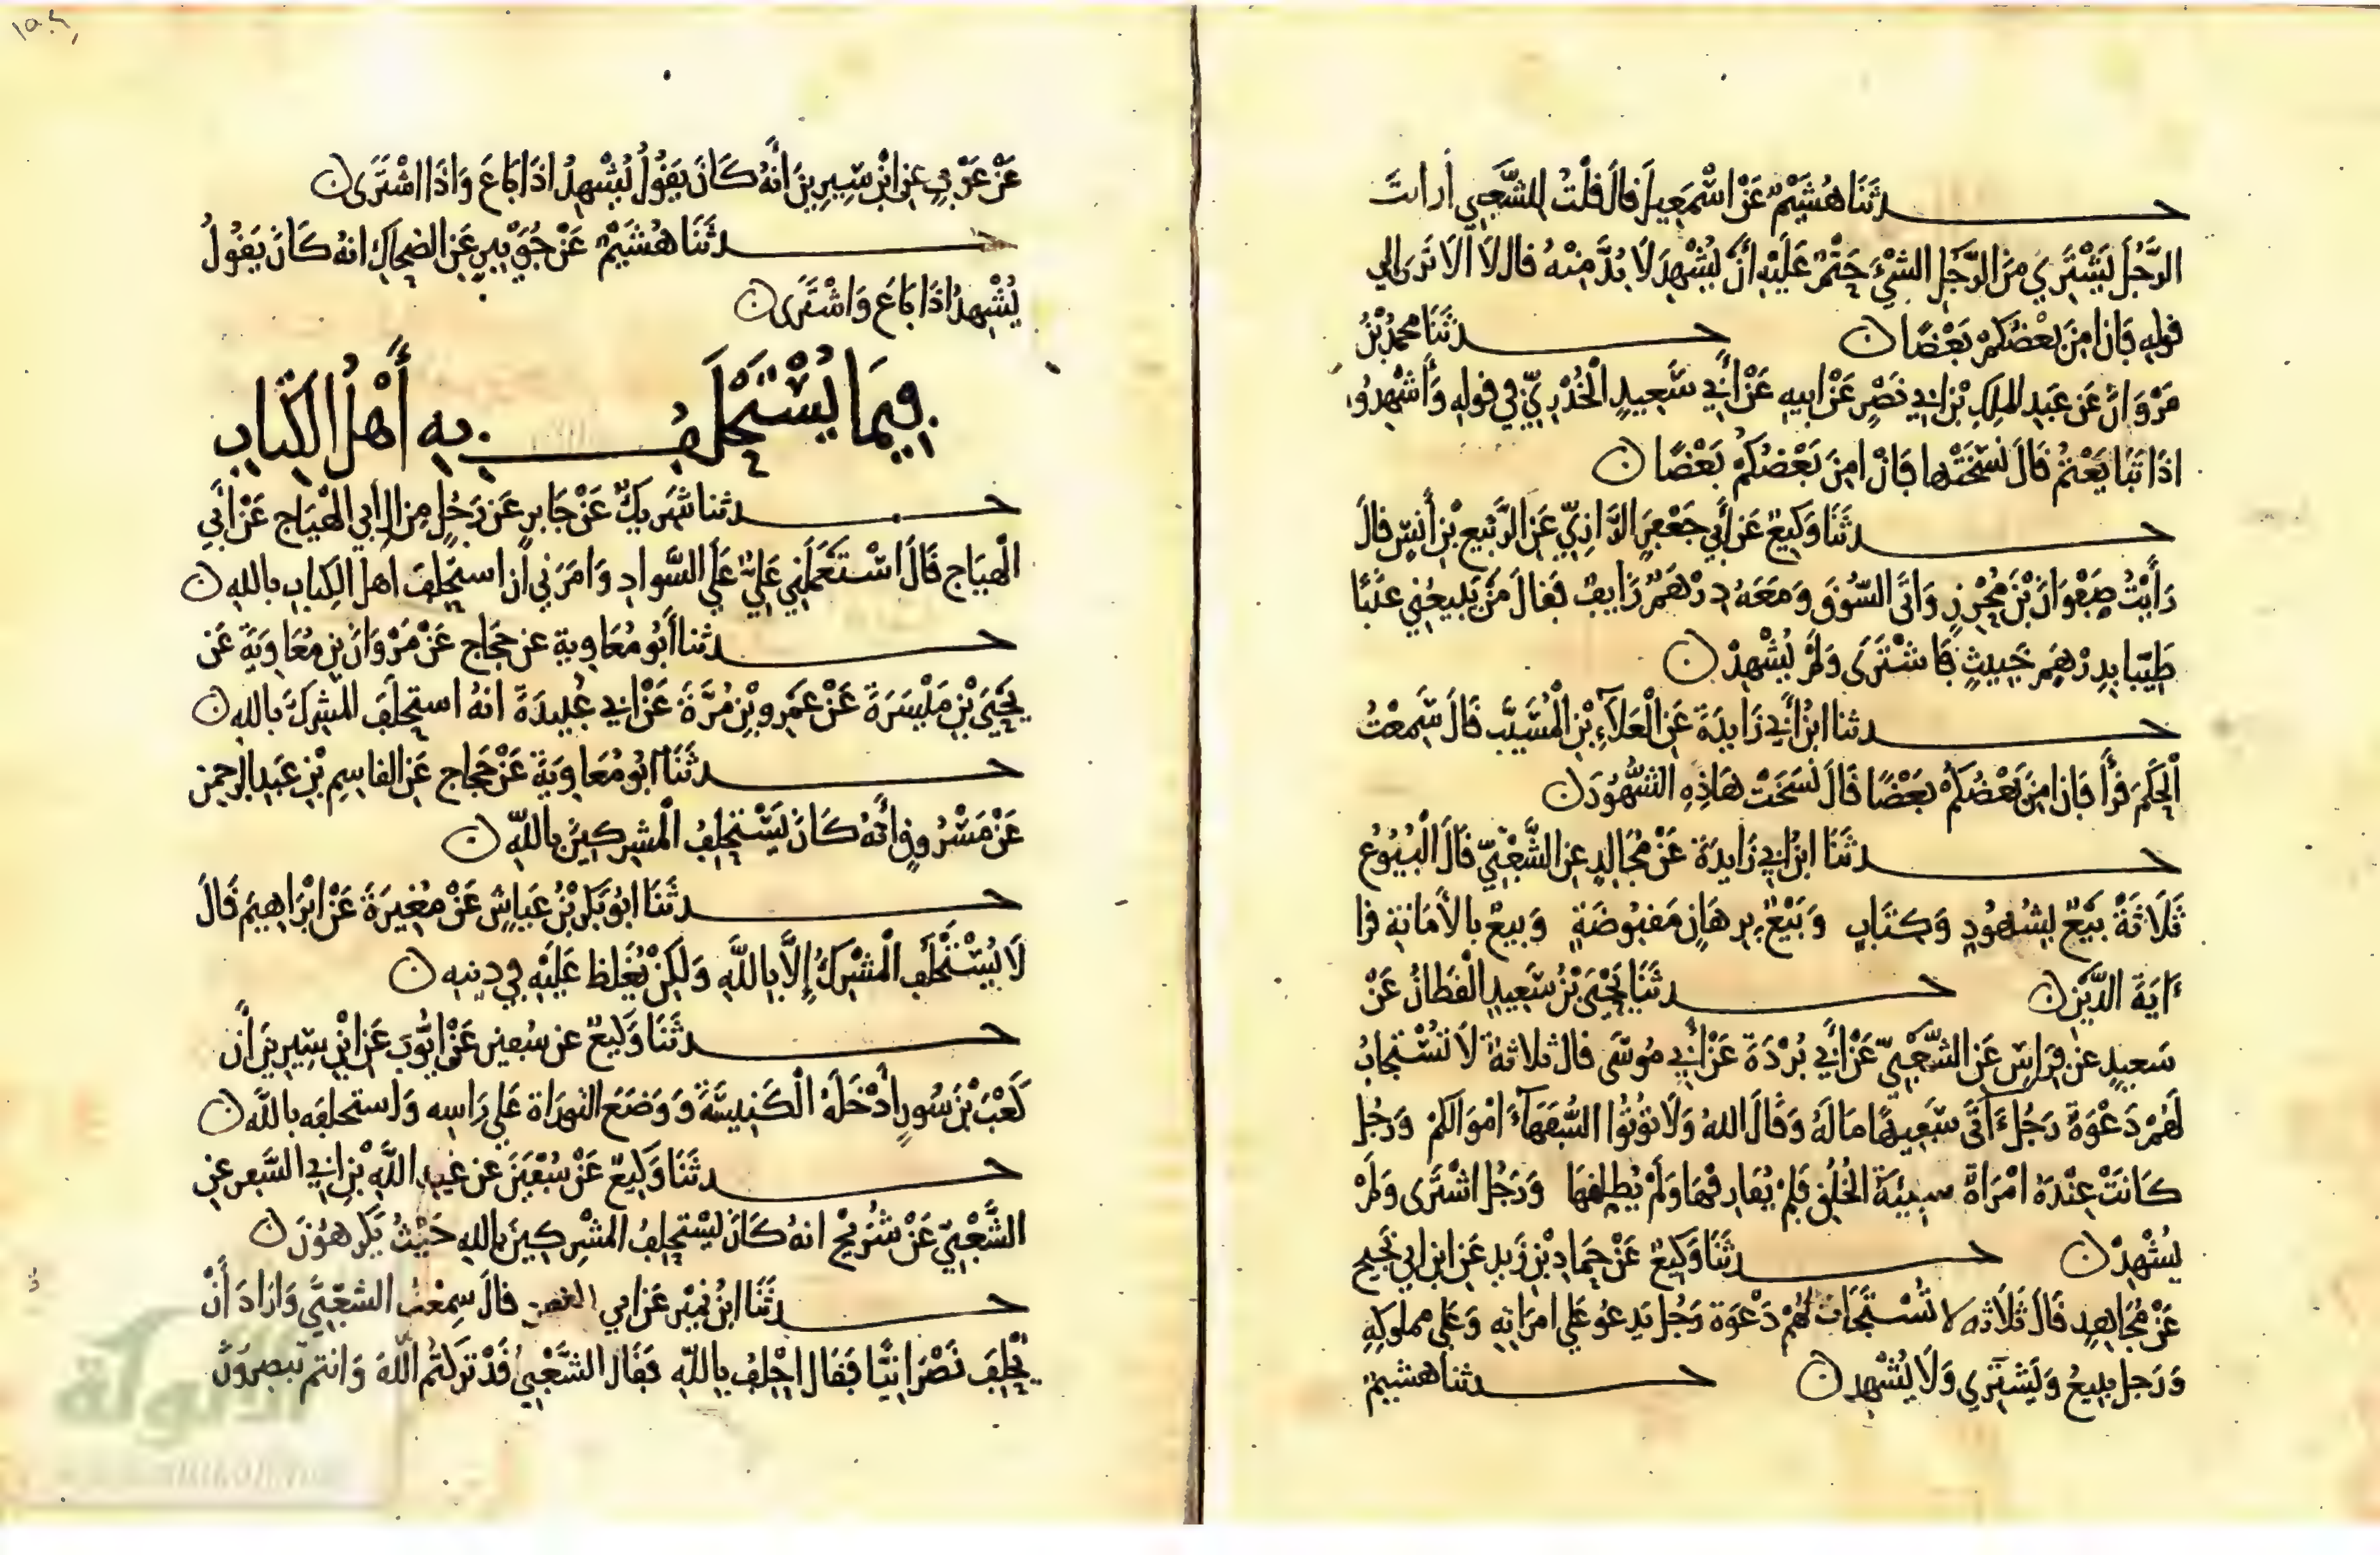 حدثنا هُشَيْمٌ عَنْ اسْمَعِيلَ قالَ قُلْتُ للشَّعْبِي أرأيتَ
الرَّجُلَ يَشْتَرِي مِنَ الرَّجُلِ الشَّيْءَ حَتْمٌ عَلَيْهِ أَنْ يُشْهِدَ لَا بُدَّ مِنْهُ قال لَا الا تَرَى الي
قوله فَإِن امِنَ بَعْضُكُمْ بَعْضًا ن حدثَنَا محمدُ بْنُ
مَرْوَانَ عَن عَبدِ الملِكِ بْنِ ابي نَصْرٍ عَنْ ابيهِ عَنْ أَبي سَعِيدٍ الْخُدْرِيِّ في قولِهِ وَأَشْهِدُوا
اذَا تَبَايَعْتمْ قَالَ نَسَخَتْها فَإنْ امِنَ بَعْضُكُمْ بَعْضًا ن
حدثَنَا وَكِيعٌ عَن أَبي جَعْفَرٍ الرَّازِيِّ عَنِ الرَّبِيعِ بْنِ أَنَسٍ قالَ
رَأَيْتُ صَفْوَانَ بْنَ مُحْرِزٍ وَاتَى السُّوقَ وَمَعَهُ دِرْهَمٌ زَايِفٌ فَقالَ مَنْ يَبِيعُنِي عِنَبًا
طَيّبا بِدِرْهَمٍ خَبِيثٍ فَاشْتَرَى وَلَمْ يُشْهِدْ ن
حدثنا ابنُ أَبي زَايِدَةَ عَنِ الْعَلَآءِ بْنِ الْمُسَيَّبِ قَالَ سَمِعْتُ
الْحَكَمَ قرأَ فَإن امِنَ بَعْضُكُمْ بَعْضًا قَالَ نَسَخَتْ هَاذِهِ الشُّهُودَ ن
حدثَنَا ابنُ ابي زَايِدَةَ عَنْ مُجَالِدٍ عنِ الشَّعْبيّ قَالَ الْبُيُوعُ
ثَلَاثَةٌ بَيْعٌ بِشُهُودٍ وَكِتَابٍ وَبَيْعٌ بِرِهَانٍ مَقبُوضَةٍ وَبيعٌ بالأَمَانة قرا
ءايَةَ الدَّيْنِ ن حدثَنَا يَحْيَى بْنُ سَعِيدٍ الْقَطانُ عَنْ
سَعيدٍ عن فِرَاسٍ عَنِ الشَّعْبِيّ عَنْ أَبي بُرْدَةَ عَنْ أَبي مُوسَى قالَ ثَلاثةٌ لَا تُسْتَجابُ
لَهُمْ دَعْوَةٌ رَجُلٌ ءاتَى سَفِيهًا مَالَهُ وَقَالَ اللهُ وَلَا تؤتُوا السُّفَهَآءَ امْوَالكمْ وَرَجُلٌ
كَانَتْ عِنْدَهُ امْرَاةٌ سيئَةُ الخُلُقِ فلَمْ يُفَارِقْهَا وَلَمْ يُطلِّقهَا وَرَجُلٌ اشْتَرَى وَلَمْ
يُشْهِدْ ن حدثَنَا وَكِيعٌ عَنْ حَمادِ بْنِ زَيدٍ عَنِ ابنِ ابي نَجِيح
عَنْ مُجَاهِدٍ قَالَ ثَلَاثَه لا تُسْتَجَابُ لَهُمْ دَعْوَة رَجُل يَدعُو عَلي امرَاتِهِ وَعَلي مملوكِهِ
وَرَجل يبيعُ وَيَشتَرِي وَلَا يُشْهِد ن حدثنا هشيمٌ
عَنْ عَوْفٍ عنِ ابْنِ سِيرِينَ أَنَّهُ كَانَ يَقُولُ يُشْهِدُ اذَا بَاعَ وَاذَا اشْتَرَى ن
حدثَنَا هُشَيْمٌ عَنْ جُوَيْبِرٍ عَنِ الضحاكِ انهُ كَانَ يَقُولُ
يُشْهِدُ اذَا بَاعَ وَاشْتَرَى ن
فِيمَا يُسْتَحْلَفُ بِهِ أَهْلُ الكِتَابِ
حدثنا شَرِيكٌ عَنْ جَابِرٍ عَن رَجُلٍ مِن ال أبي الْهَيَاج عَنْ أَبي
الْهيَاج قَالَ اسْتَعْمَلَنِي عَليٌّ عَلَى السَّوادِ وَامَرَني أَن استحْلِفَ اهلَ الكِتابِ باللهِ ن
حدثنا أَبُو مُعَاوِيةَ عن حَجَاج عَنْ مَرْوَانَ بنِ مُعَاوِيَةَ عَن
يَحْيَى بْنِ مَيْسَرَةَ عَنْ عَمْرِو بْنِ مُرَّةَ عَنْ ابي عُبيدَةَ انهُ استحلَفَ المشرِكَ باللهِ ن
حدثَنَا ابُو مُعَاوِيَةَ عَنْ حَجَاج عَنِ القاسِمِ بْنِ عَبدِ الرحمنِ
عَنْ مَسْرُوقٍ أَنَّهُ كَانَ يَسْتَحْلِفُ الْمُشرِكينَ باللهِ ن
حدثَنَا ابُو بَكْرِ بْنُ عَيَاشٍ عَنْ مُغِيرَةَ عَنْ ابْرَاهِيمَ قَالَ
لَا يُسْتَحْلَفُ الْمُشْرِكُ إِلَّا بِاللَّهِ وَلكِنْ يُغَلظ عَلَيْهِ في دِينِه ن
حدثَنَا وَكِيعٌ عن سُفينَ عَنْ ايُّوبَ عَنِ ابْنِ سِيرِينَ أَن
كَعْبَ بْنَ سُورٍ أدْخَلَهُ الْكَنِيسَةَ وَوَضَعَ التورَاةَ عَلى رَاسِهِ وَاستحلفه باللهِ ن
حدثَنَا وَكِيعٌ عَنْ سُفْيَنَ عَن عَبدِ اللهِ بْنِ ابي السَّفرِ عنِ
الشَّعْبِيّ عَنْ شُرَيْحٍ انهُ كَانَ يَسْتحلِفُ المشْرِكِينَ باللهِ حَيْثُ يَكرَهُونَ ن
حدثَنَا ابنُ نُمَيْرٍ عَنْ ابي الغصن قالَ سَمِعْتُ الشعْبِيَّ وَارَادَ أَنْ
يُحْلِفَ نَصْرَانيًّا فَقالَ احْلِفُ بِاللَّهِ فَقَال الشَّعْبِيُّ قَدْ تَرَكتُم اللهَ وَانتم تبصِرُونَ